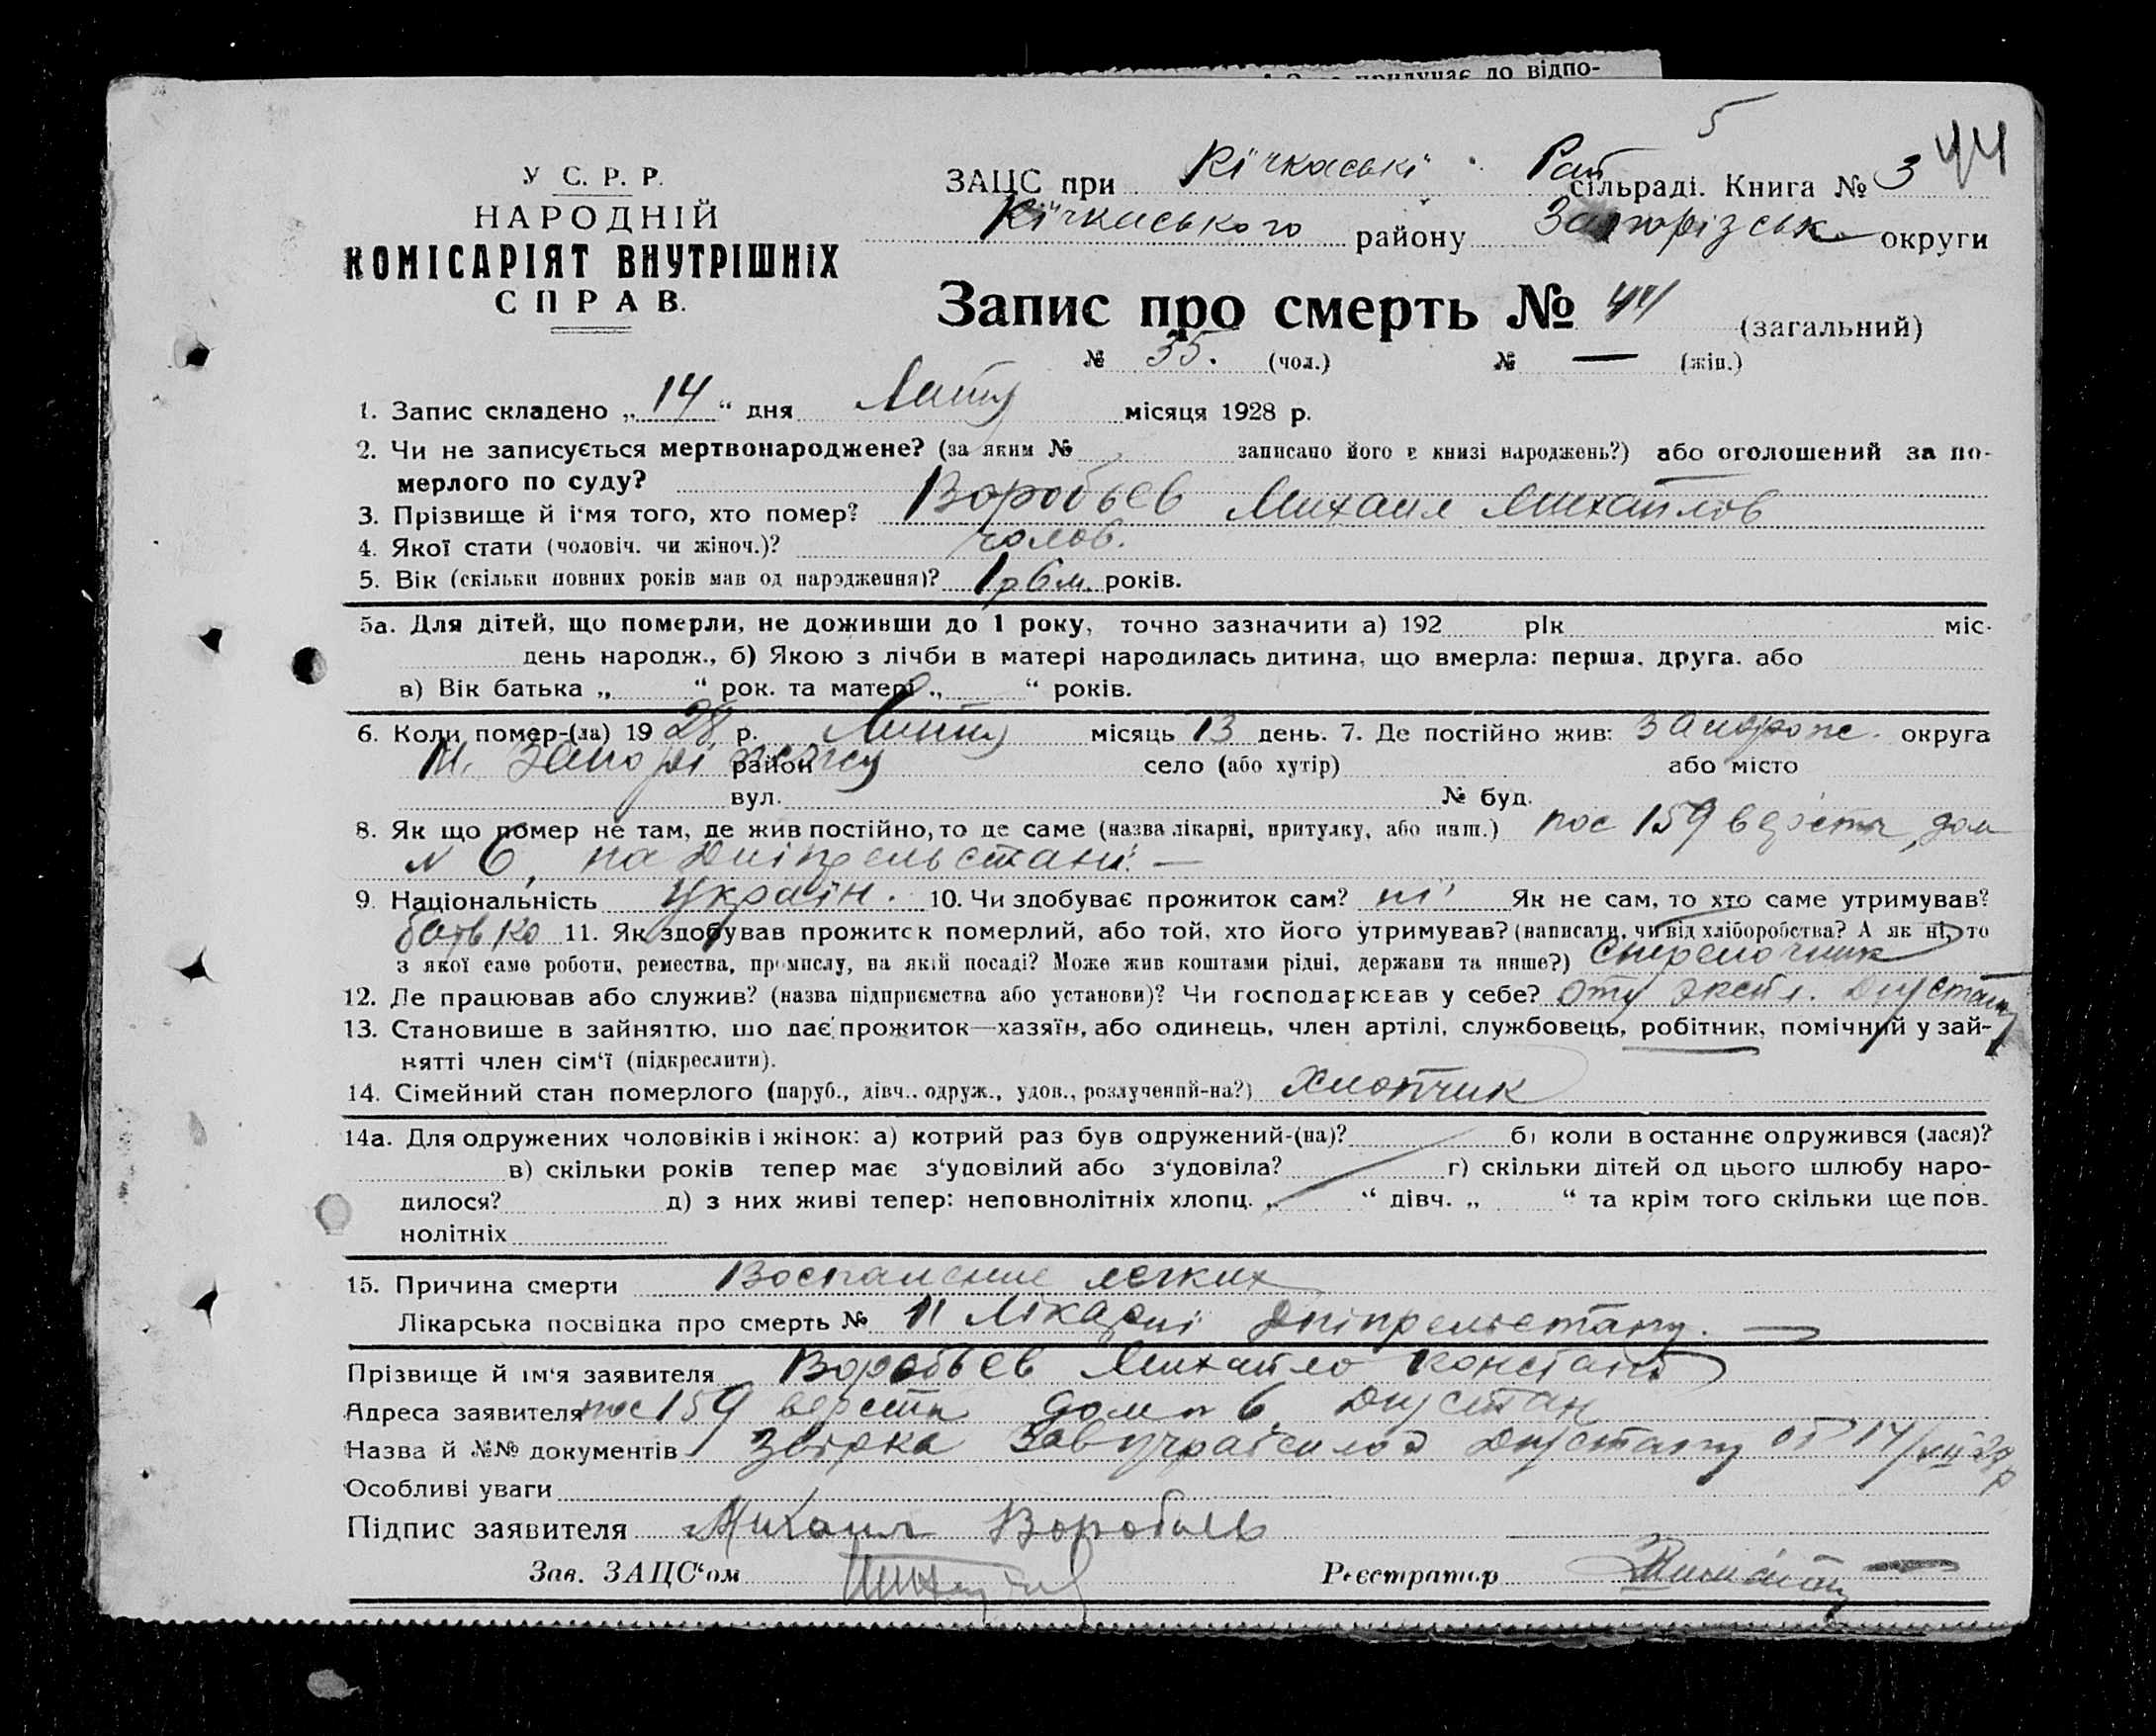 придучає до відпо-
5
44
У С. Р. Р.
НАРОДНІЙ
КОМІСАРІЯТ ВНУТРІШНІХ
СПРАВ.
ЗАЦС при Кічкаські Рай сільраді. Книга № 3
Кічкаського району Запорізськ округи
Запис про смерть № 44 (загальний)
№ 35. (чол.) № — (жін.)
1. Запис складено „14“ дня Люту місяця 1928 р.
2. Чи не записується мертвонароджене? (за яким № записано його в книзі народжень?) або оголошений за по-
мерлого по суду?
3. Прізвище й ім'я того, хто помер? Воробьев Михаил Михайлов
4. Якої стати (чоловіч. чи жіноч.)? чолов.
5. Вік (скільки повних років мав од народження)? 1 р 6 м. років.
5а. Для дітей, що померли, не доживши до 1 року, точно зазначити а) 192 рік міс.
день народж., б) Якою з лічби в матері народилась дитина, що вмерла: перша, друга, або
в) Вік батька „ “ рок. та матері „ “ років.
6. Коли помер-(ла) 1928 р. Люту місяць 13 день. 7. Де постійно жив: округа
м. Запоріжжу район село (або хутір) або місто
вул. № буд.
8. Як що помер не там, де жив постійно, то де саме (назва лікарні, притулку, або инш.) пос 159 верста, дом
N 6, на Дніпрельстані. —
9. Національність Україн. 10. Чи здобуває прожиток сам? ні Як не сам, то хто саме утримував?
батько 11. Як здобував прожиток померлий, або той, хто його утримував? (написати, чи від хліборобства? А як ні, то
з якої саме роботи, ремества, промислу, на якій посаді? Може жив коштами рідні, держави та инше?) Стрелочник
12. Де працював або служив? (назва підприємства або установи)? Чи господарював у себе? експл.
13. Становище в зайняттю, що дає прожиток—хазяїн, або одинець, член артілі, службовець, робітник, помічний у зай-
нятті член сім'ї (підкреслити).
14. Сімейний стан померлого (паруб., дівч., одруж., удов., розлучений-на?) Хлопчик
14а. Для одружених чоловіків і жінок: а) котрий раз був одружений-(на)? б) коли востаннє одружився (лася)?
в) скільки років тепер має з'удовілий або з'удовіла? г) скільки дітей од цього шлюбу наро-
дилося? д) з них живі тепер: неповнолітніх хлопц. „ “ дівч. „ “ та крім того скільки ще пов.
нолітніх
15. Причина смерти Воспаление легких
Лікарська посвідка про смерть № 11 Лікарні Дніпрельстану. —
Прізвище й ім'я заявителя Воробьев Михайло Констант
Адреса заявителя пос 159 верста дом n 6 Днустан
Назва й №№ документів Днустану от 14/
Особливі уваги
Підпис заявителя Михаил Воробьев
Зав. ЗАЦС'ом
Реєстратор